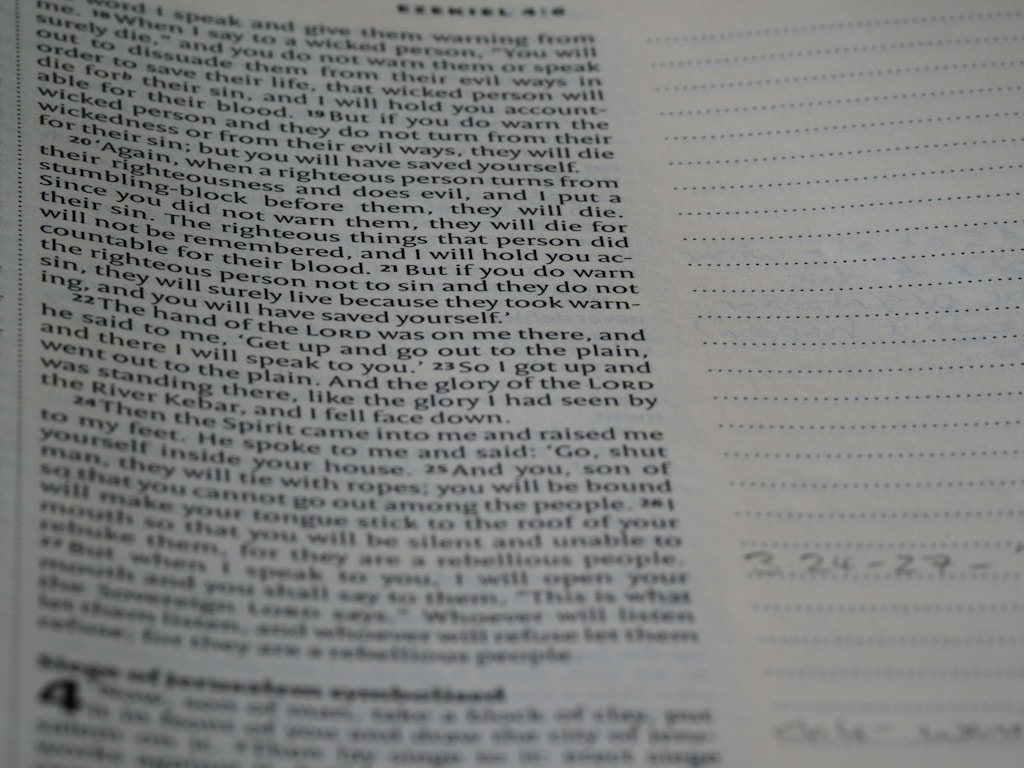 EZEKIEL 4:6
word I speak and give them warning from
me. 18 When I say to a wicked person, "You will
surely die," and you do not warn them or speak
out to dissuade them from their evil ways in
order to save their life, that wicked person will
die forb their sin, and I will hold you account-
able for their blood. 19 But if you do warn the
wicked person and they do not turn from their
wickedness or from their evil ways, they will die
for their sin; but you will have saved yourself.
20 'Again, when a righteous person turns from
their righteousness and does evil, and I put a
stumbling-block before them, they will die.
Since you did not warn them, they will die for
their sin. The righteous things that person did
will not be remembered, and I will hold you ac-
countable for their blood. 21 But if you do warn
the righteous person not to sin and they do not
sin, they will surely live because they took warn-
ing, and you will have saved yourself.'
22 The hand of the LORD was on me there, and
he said to me, 'Get up and go out to the plain,
and there I will speak to you.' 23 So I got up and
went out to the plain. And the glory of the LORD
was standing there, like the glory I had seen by
the River Kebar, and I fell face down.
24 Then the Spirit came into me and raised me
to my feet. He spoke to me and said: 'Go, shut
yourself inside your house. 25 And you, son of
man, they will tie with ropes; you will be bound
so that you cannot go out among the people. 26 I
will make your tongue stick to the roof of your
mouth so that you will be silent and unable to
rebuke them, for they are a rebellious people.
27 But when I speak to you, I will open your
mouth and you shall say to them, "This is what
the Sovereign LORD says." Whoever will listen
let them listen, and whoever will refuse let them
refuse; for they are a rebellious people.
Siege of Jerusalem symbolised
4 'Now, son of man, take a block of clay, put
it in front of you and draw the city of Jeru-
24-27 -